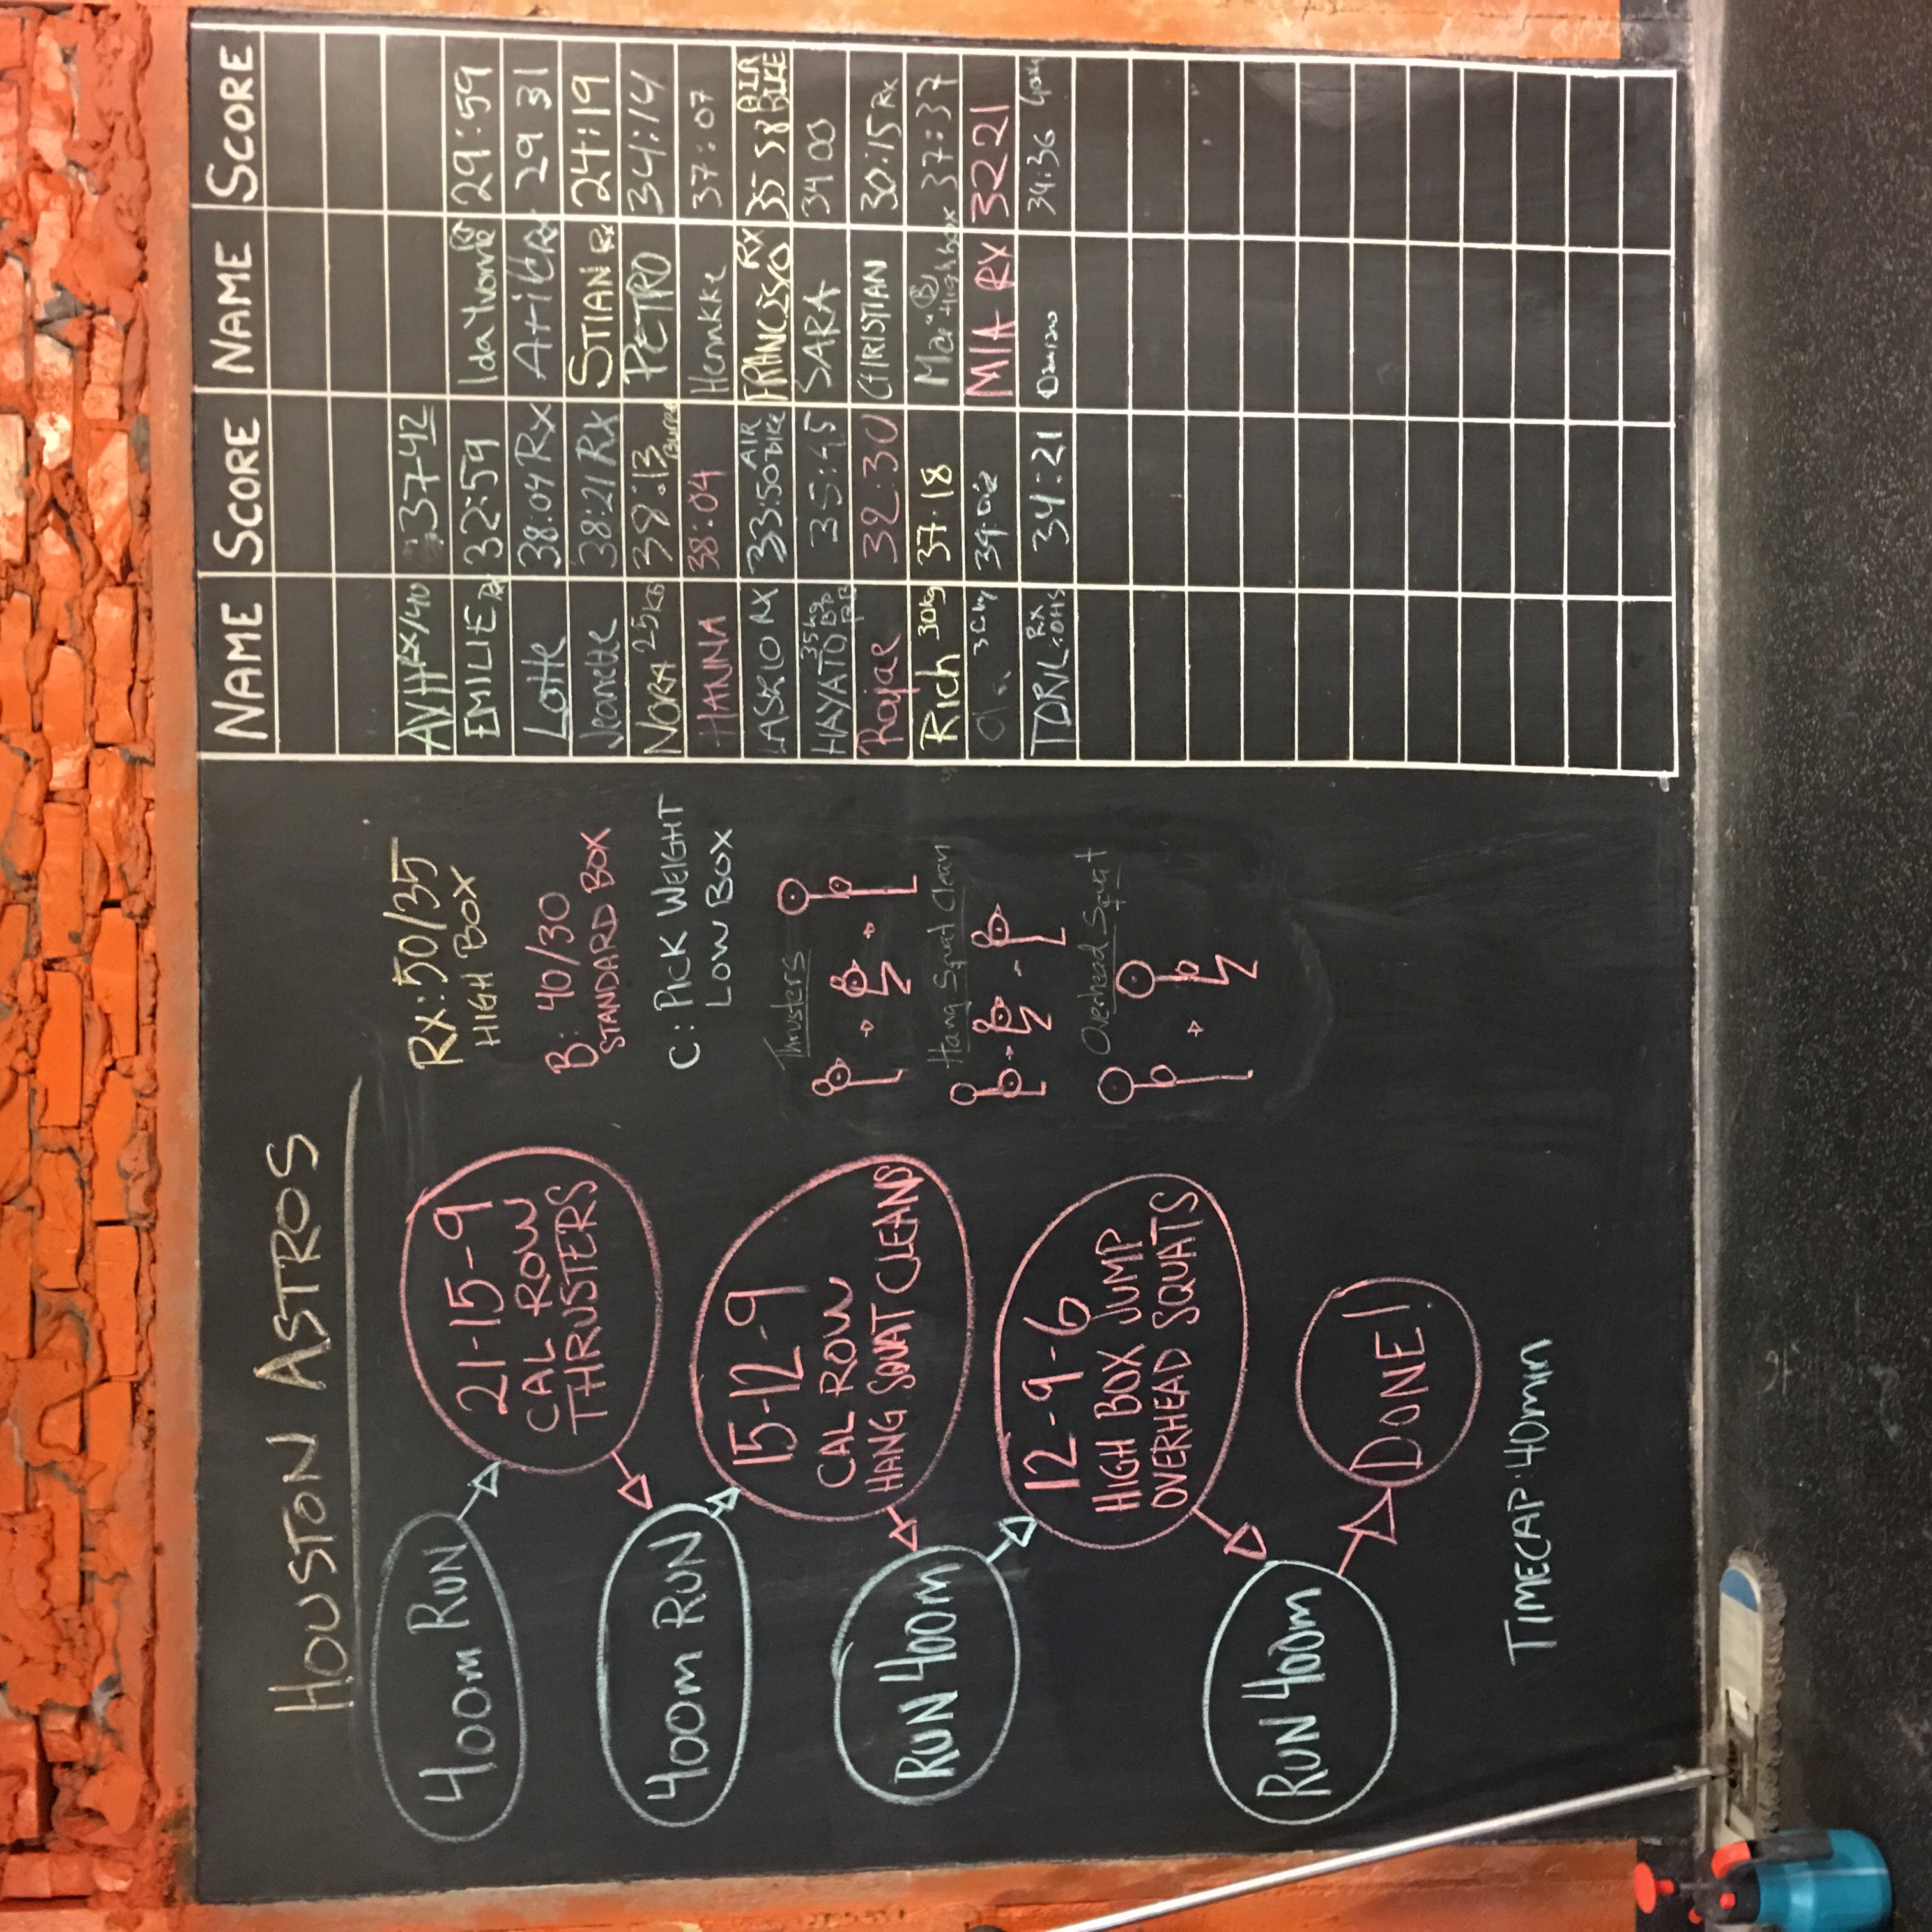 HOUSTON ASTROS
400m RUN
21-15-9
CAL ROW
THRUSTERS
400m RUN
15-12-9
CAL ROW
HANG SQUAT CLEANS
RUN 400m
12-9-6
HIGH BOX JUMP
OVERHEAD SQUATS
RUN 400m
DONE!
TIMECAP: 40min
Rx: 50/35
HIGH BOX
B: 40/30
STANDARD BOX
C: PICK WEIGHT
LOW BOX
Thrusters
Hang Squat Clean
Overhead Squat
NAME SCORE NAME SCORE
37:42
EMILIE Rx 32:59 Ida Yvonne Rx 29:59
Lotte 38:04 Rx 29 31
Jeanette 38:21 Rx STIAN Rx 24:19
NORA 25kg 38:13 PETRO 34:14
HANNA 38:04 37:07
RX 33:50 AIR BIKE RX 35 58 AIR BIKE
HAYATO 35kg 35:45 SARA 34 00
32:30 CHRISTIAN 30:15 Rx
Rich 30kg 37:18 High box 37:37
MIA RX 32 21
TORIL RX 34:21 34:36